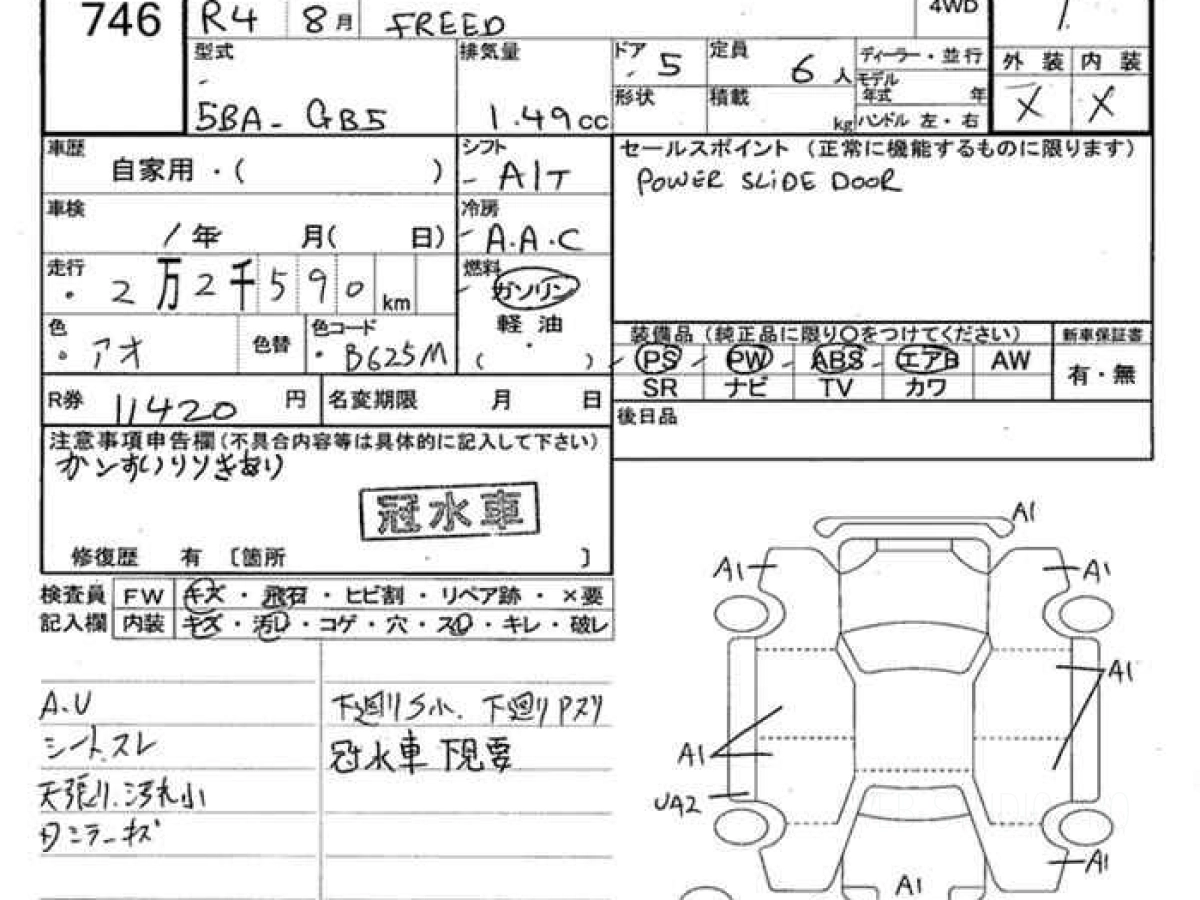 746 R4 8月 FREED 4WD 1
型式 排気量 ドア 5 定員 6人 ディーラー・並行 外装 内装
5BA-GB5 1.49cc 形状 積載 kg モデル年式 年 ハンドル 左・右 X X
車歴 自家用・( ) シフト A/T セールスポイント (正常に機能するものに限ります)
POWER SLIDE DOOR
車検 年 月( 日) 冷房 A.A.C
走行 2万2千590km 燃料 ガソリン
軽油
( ・ )
色 アオ 色替 色コード B625M
装備品 (純正品に限り○をつけてください) 新車保証書
PS PW ABS エアB AW 有・無
SR ナビ TV カワ
R券 11420円 名変期限 月 日
後日品
注意事項申告欄(不具合内容等は具体的に記入して下さい)
かんすいりれきあり
冠水車
修復歴 有 [箇所 ]
検査員 FW キズ・飛石・ヒビ割・リペア跡・×要
記入欄 内装 キズ・汚レ・コゲ・穴・スレ・キレ・破レ
A.U
シートスレ
天張り.汚れ小
下廻りS小. 下廻りPズリ
冠水車 下見要
A1
A1
A1
A1
A1
UA2
A1
A1